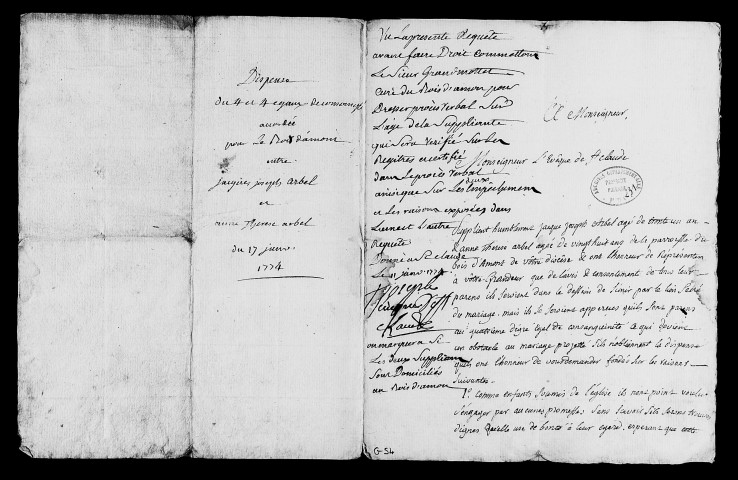 Dispense
du 4 et 4 egaux de consang.
accordée
pour Le Bois d'amont
entre
jacques joseph arbel
et
anne Therese arbel
du 17 janvier
1774
Vu La presente Requete
avant faire Droit Commettons
Le Sieur Grandmottet
curé du Bois d'amon pour
Dresser procès verbal Sur
L'age de la Suppliante
qui Sera verifié Sur les
Registres et certifié
dans Le procès verbal
ainsi que Sur Les deux Empechemens
et Les raisons exposées dans
L'une et L'autre
Requete
Donné a St claude
Le 11 janv. 1774
† Joseph
Claude
on marquera Si
Les deux Supplians
Sont Domiciliés
au Bois d'amon
A Monseigneur,
Monseigneur l'Evêque de St claude
Supplient humblement Jacque Joseph Arbel agé de trente un an
& anne therese arbel agée de vingt huit ans de la parroisse du
bois d'Amont de votre diocèse & ont l'honneur de representer
à votre Grandeur que de l'avis & consentement de tous leurs
parens ils seroient dans le dessein de s'unir par le lien sacré
du mariage. mais ils se seroient apperçus qu'ils sont parens
au quatrieme degre egal de consanguinité ce qui devient
un obstacle au mariage projetté s'ils n'obtiennent la dispense
qu'ils ont l'honneur de vous demander fondés sur les raisons
suivantes.
1° comme enfants soumis de l'église ils n'ont point voulu
s'engager par aucunes promesses sans savoir s'ils seront trouvés
dignes qu'elle use de bonté à leur egard, esperant que cette
G-54